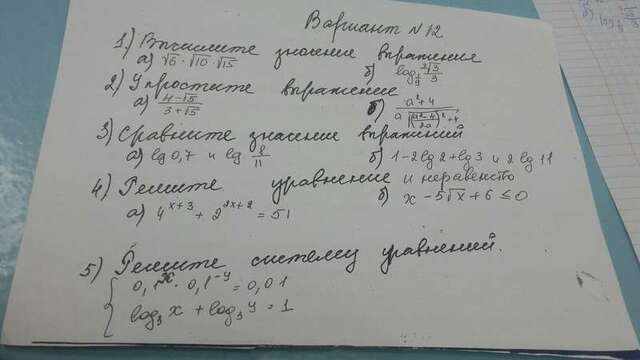 Вариант N 12
1) Вычислите значение выражения
а) √6 · √10 · √15 б) log
2) Упростите выражение
а) (4-√5)/(3+√5) б) (a²+4)/(a√(((a²-4)/(2a))²+4))
3) Сравните значение выражений
а) lg 0,7 и lg 8/11 б) 1-2lg2+lg3 и 2lg11
4) Решите уравнение и неравенство
а) 4^(x+3) + 2^(2x+2) = 51 б) x - 5√x + 6 ≤ 0
5) Решите систему уравнений.
{ 0,1^x · 0,1^(-y) = 0,01
log₃x + log₃y = 1